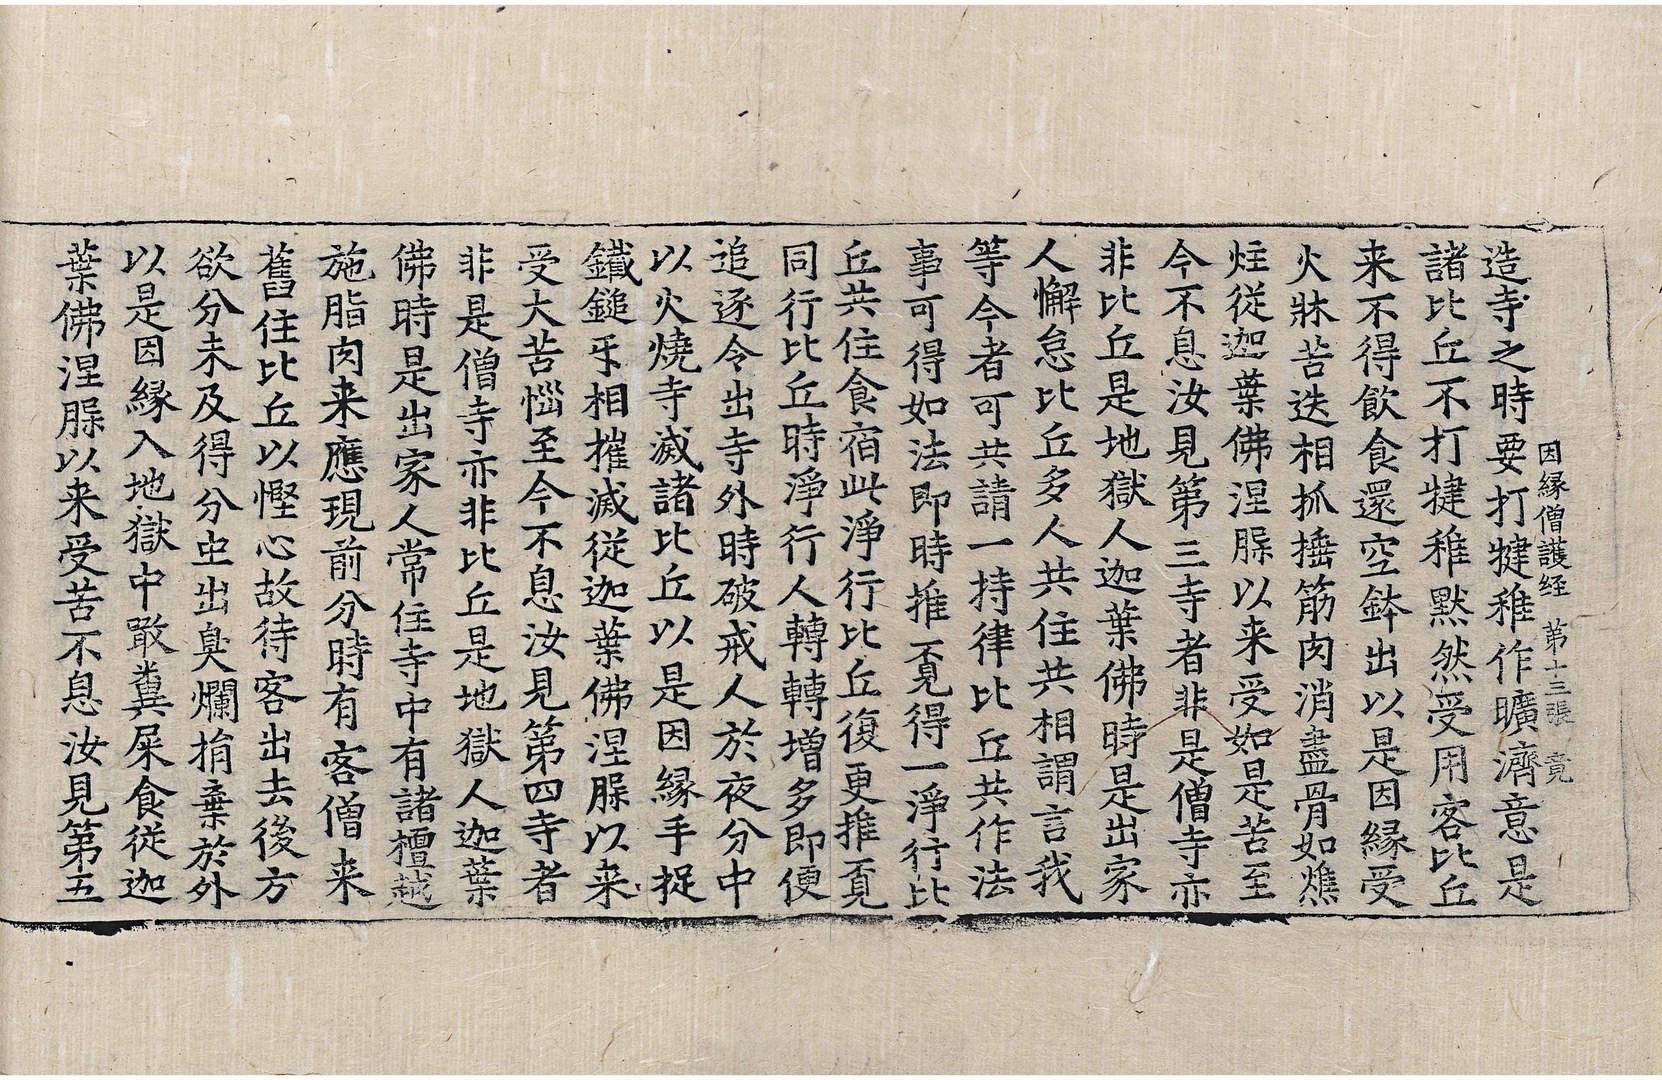 因縁僧護経　第十三張　竟
造寺之時要打揵稚作曠濟意是
諸比丘不打揵稚黙然受用客比丘
来不得飲食還空鉢出以是因縁受
火牀苦迭相抓捶筋肉消盡骨如燋
炷従迦葉佛涅脲以来受如是苦至
今不息汝見第三寺者非是僧寺亦
非比丘是地獄人迦葉佛時是出家
人懈怠比丘多人共住共相謂言我
等今者可共請一持律比丘共作法
事可得如法即時推覔得一淨行比
丘共住食宿此淨行比丘復更推覔
同行比丘時淨行人轉轉増多即便
追逐令出寺外時破戒人於夜分中
以火燒寺滅諸比丘以是因縁手捉
鐵鎚㸦相摧滅従迦葉佛涅脲以来
受大苦惱至今不息汝見第四寺者
非是僧寺亦非比丘是地獄人迦葉
佛時是出家人常住寺中有諸檀越
施脂肉来應現前分時有客僧来
舊住比丘以慳心故待客出去後方
欲分未及得分虫出臭爛捐棄於外
以是因縁入地獄中噉糞屎食従迦
葉佛涅脲以来受苦不息汝見第五